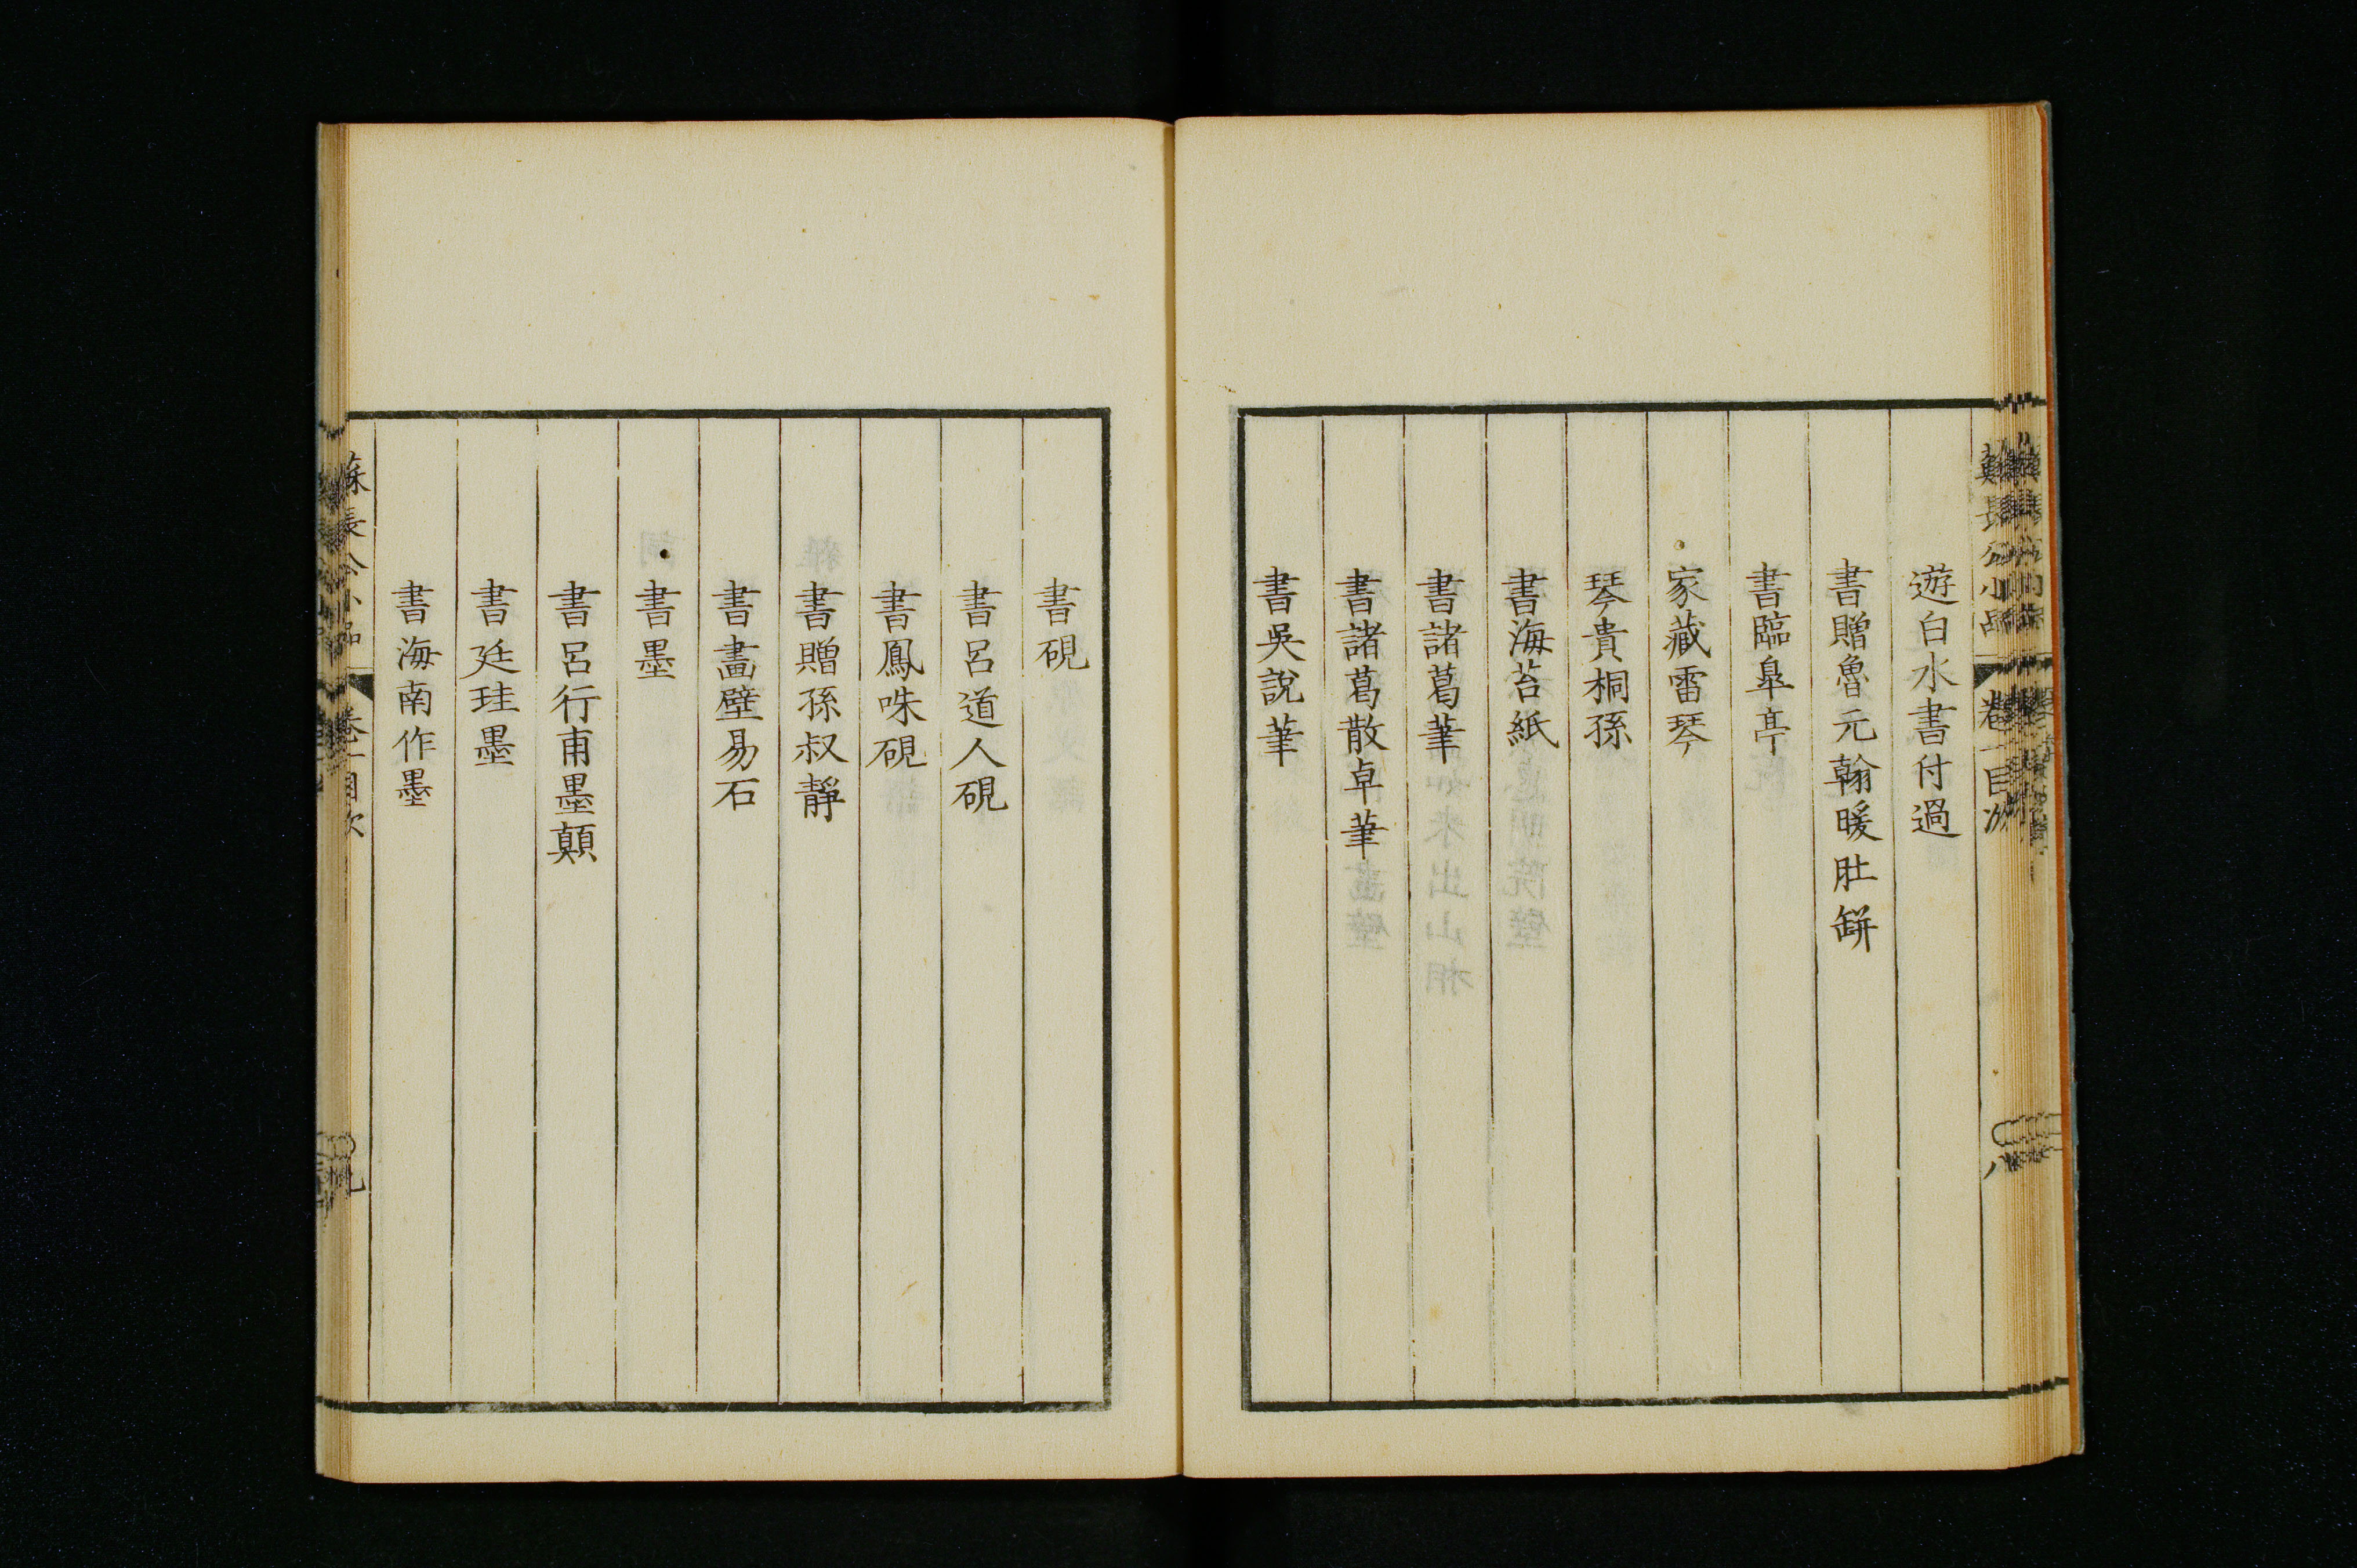 蘇長公小品 卷一目次 八
遊白水書付過
書贈魯元翰暖肚缾
書臨皐亭
家藏雷琴
琴貴桐孫
書海苔紙
書諸葛筆
書諸葛散卓筆
書吳說筆
書硯
書呂道人硯
書鳳咮硯
書贈孫叔靜
書畫壁易石
書墨
書呂行甫墨顛
書廷珪墨
書海南作墨
蘇長公小品 卷一目次 九